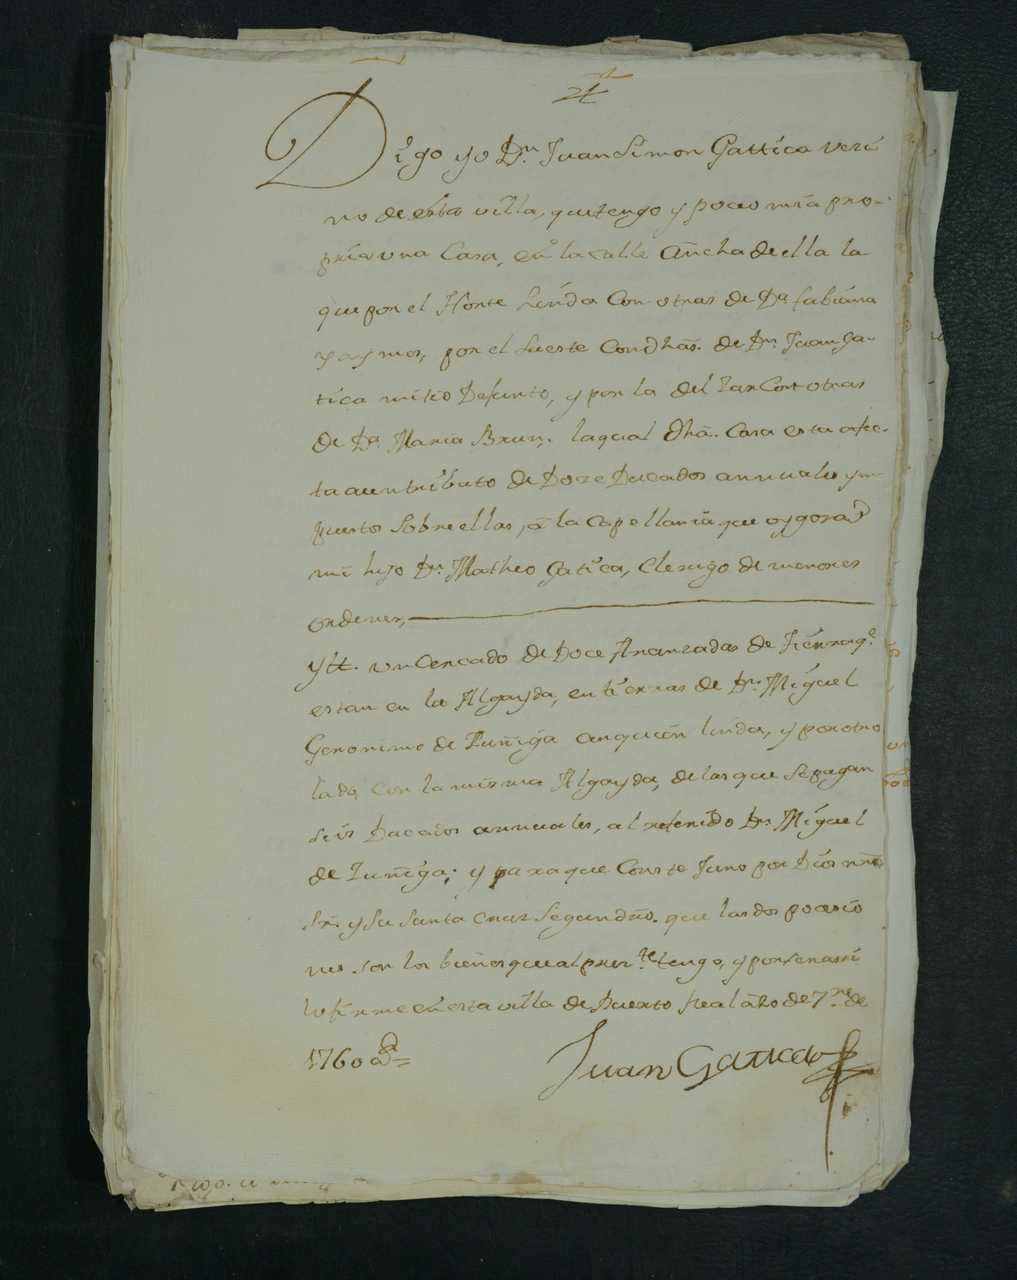 Digo yo Dn. Juan Simon Gattica veci
no de esta villa, que tengo y poceo mia pro-
pria una Casa, en la calle Ancha de ella la
que por el Norte Linda Con otras de Da. fabiana
por el Sueste Con dhas. de Dn. Juan Ga-
tica mi tio Defunto, y por la del Con otras
de Da. Maria Brun. la qual dha. Casa esta afec-
ta a un tributo de Doze Ducados annuales ym
puestos Sobre ellas, a la capellania que oy goza
mi hijo Dn. Matheo Gatica, Clerigo de menores
ordenes,
Ytt. un Cercado de Doce Aranzadas de Tierra qe.
estan en la Algayda, en tierras de Dn. Miguel
Geronimo de Zuñiga con quien linda, y por otro
lado, con la misma Algayda, de las que se pagan
seis Ducados annuales, al referido Dn. Miguel
de Zuñiga; y para que Conste Juro por Dios nro
Sr. y su Santa Cruz Segun dro. que las dos pocecio
nes son los bienes que al presete. tengo, y por ser assi
lo firme en esta villa de Puerto Real año de 7re. de
1760 as=
Juan Gatica